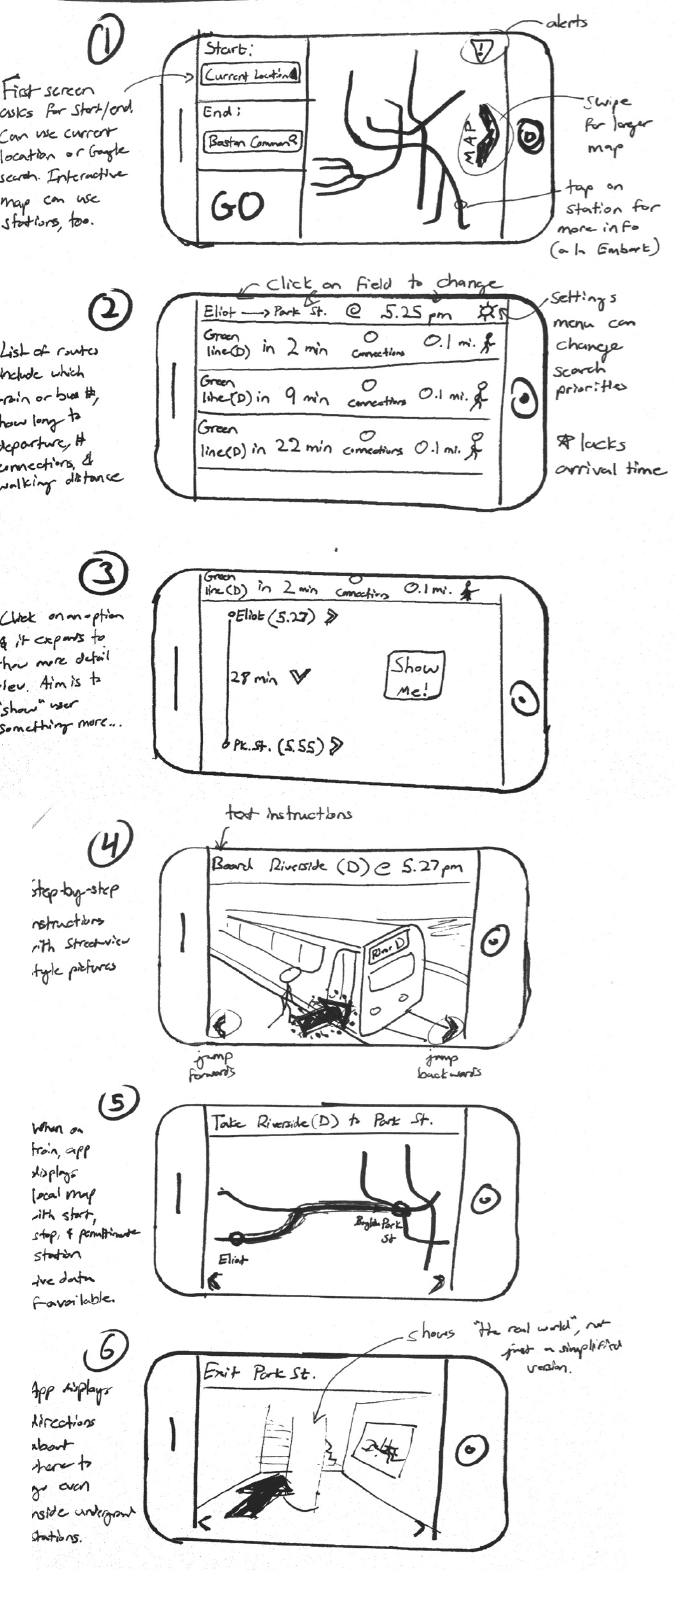 1
alerts
First screen
asks for Start/end.
Can use current
location or Google
search. Interactive
map can use
stations, too.
Start:
Current Location
End:
Boston Common
GO
!
MAP
Swipe
for larger
map
tap on
station for
more info
(a la Embark)
2
Click on field to change
List of routes
include which
train or bus #,
how long to
departure, #
connections, &
walking distance
Eliot → Park St. @ 5.25 pm
Green
line(D) in 2 min 0 connections 0.1 mi.
Green
line(D) in 9 min 0 connections 0.1 mi.
Green
line(D) in 22 min 0 connections 0.1 mi.
Settings
menu can
change
search
priorities
* lacks
arrival time
3
Click on an option
& it expands to
show more detail
view. Aim is to
"show" user
something more...
Green
line(D) in 2 min 0 connections 0.1 mi.
Eliot (5.27) >>
28 min
Pk. St. (5.55) >>
Show
Me!
4
text instructions
step-by-step
instructions
with streetview
style pictures
Board Riverside (D) @ 5.27pm
River D
jump
forwards
jump
backwards
5
When on
train, app
displays
local map
with start,
stop, & penultimate
station
live data
if available.
Take Riverside (D) to Park St.
Eliot
Park
St
6
shows "the real world", not
just a simplified
version.
App displays
directions
about
where to
go even
inside underground
stations.
Exit Park St.